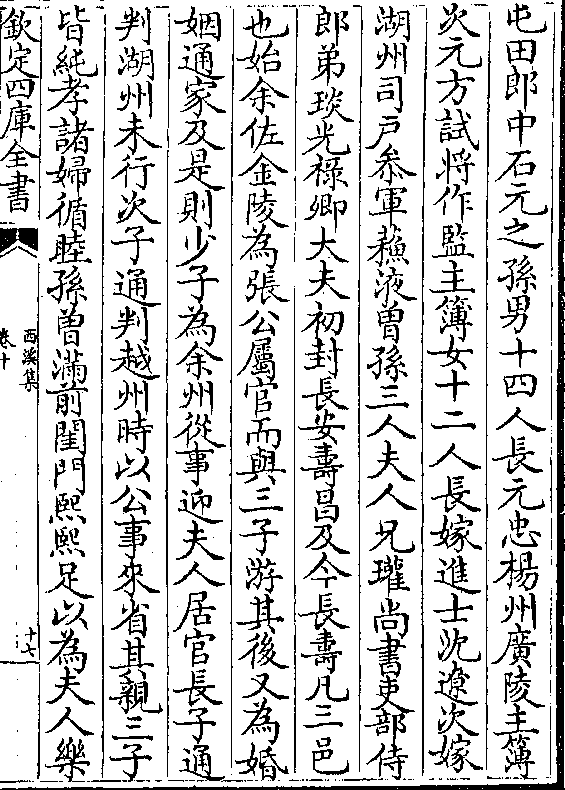 屯田郎中石元之孫男十四人長元忠楊州廣陵主簿
次元方試將作監主簿女十二人長嫁進士沈遼次嫁
湖州司戶叅軍蘓液曾孫三人夫人兄瓘尚書吏部侍
郎弟琰光祿卿大夫初封長安壽昌及今長壽凡三邑
也始余佐金陵為張公屬官而與三子游其後又為婚
姻通家及是則少子為余州從事迎夫人居官長子通
判湖州未行次子通判越州時以公事來省其親三子
皆純孝諸婦循睦孫曾滿前閨門熙熙足以為夫人樂
欽定四庫全書
西溪集
卷十
十七